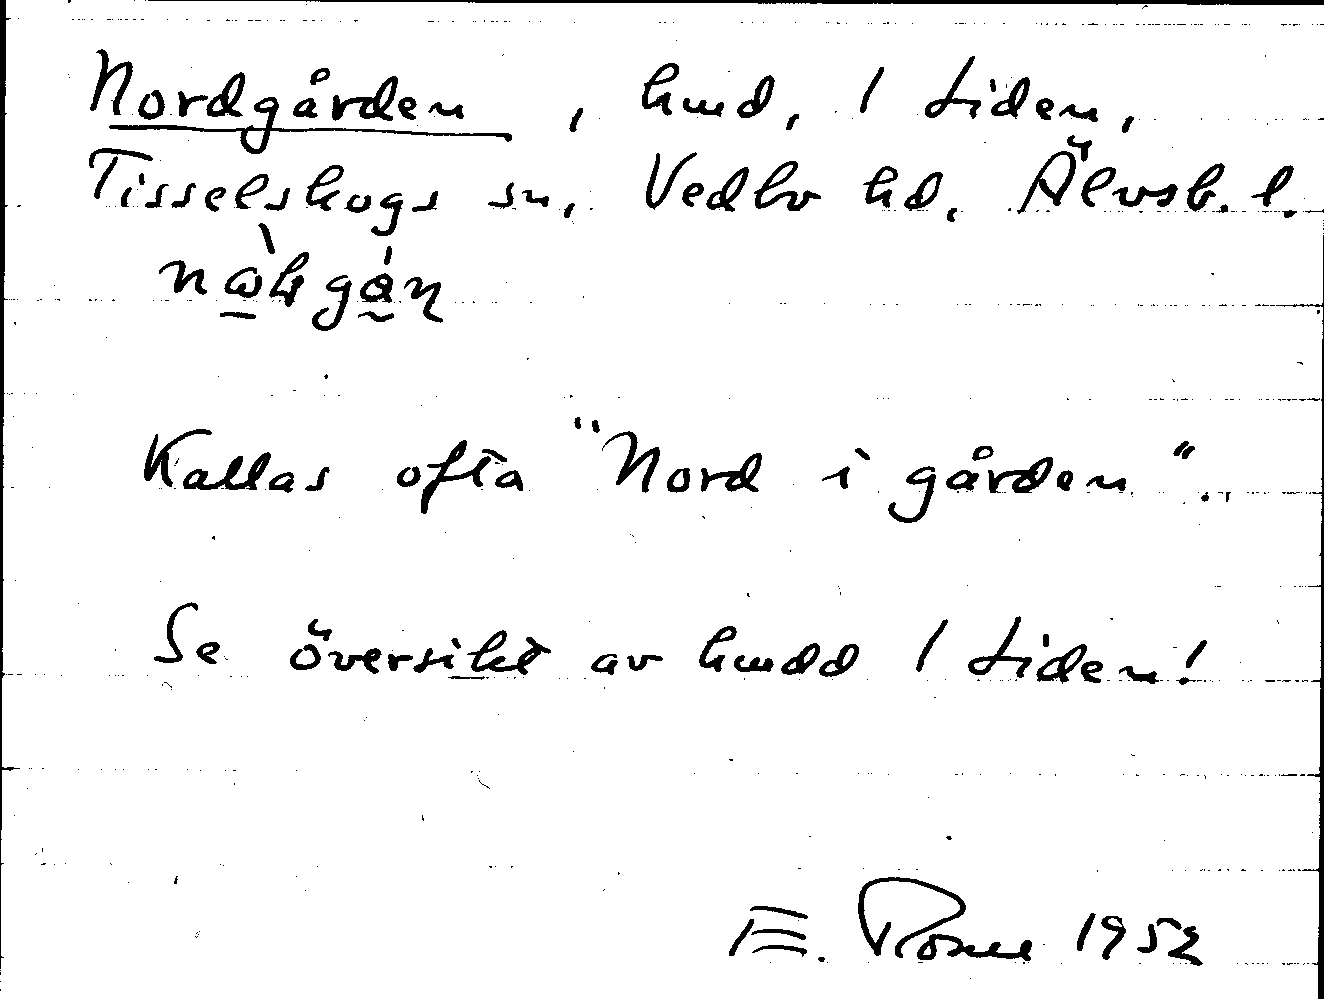 Nordgården, hmd, 1 Liden,
Tisselskogs sn, Vedbo hd, Älvsb. l.
Kallas ofta "Nord i gården".
Se översikt av hmdd 1 Liden!
E. Rosell 1952